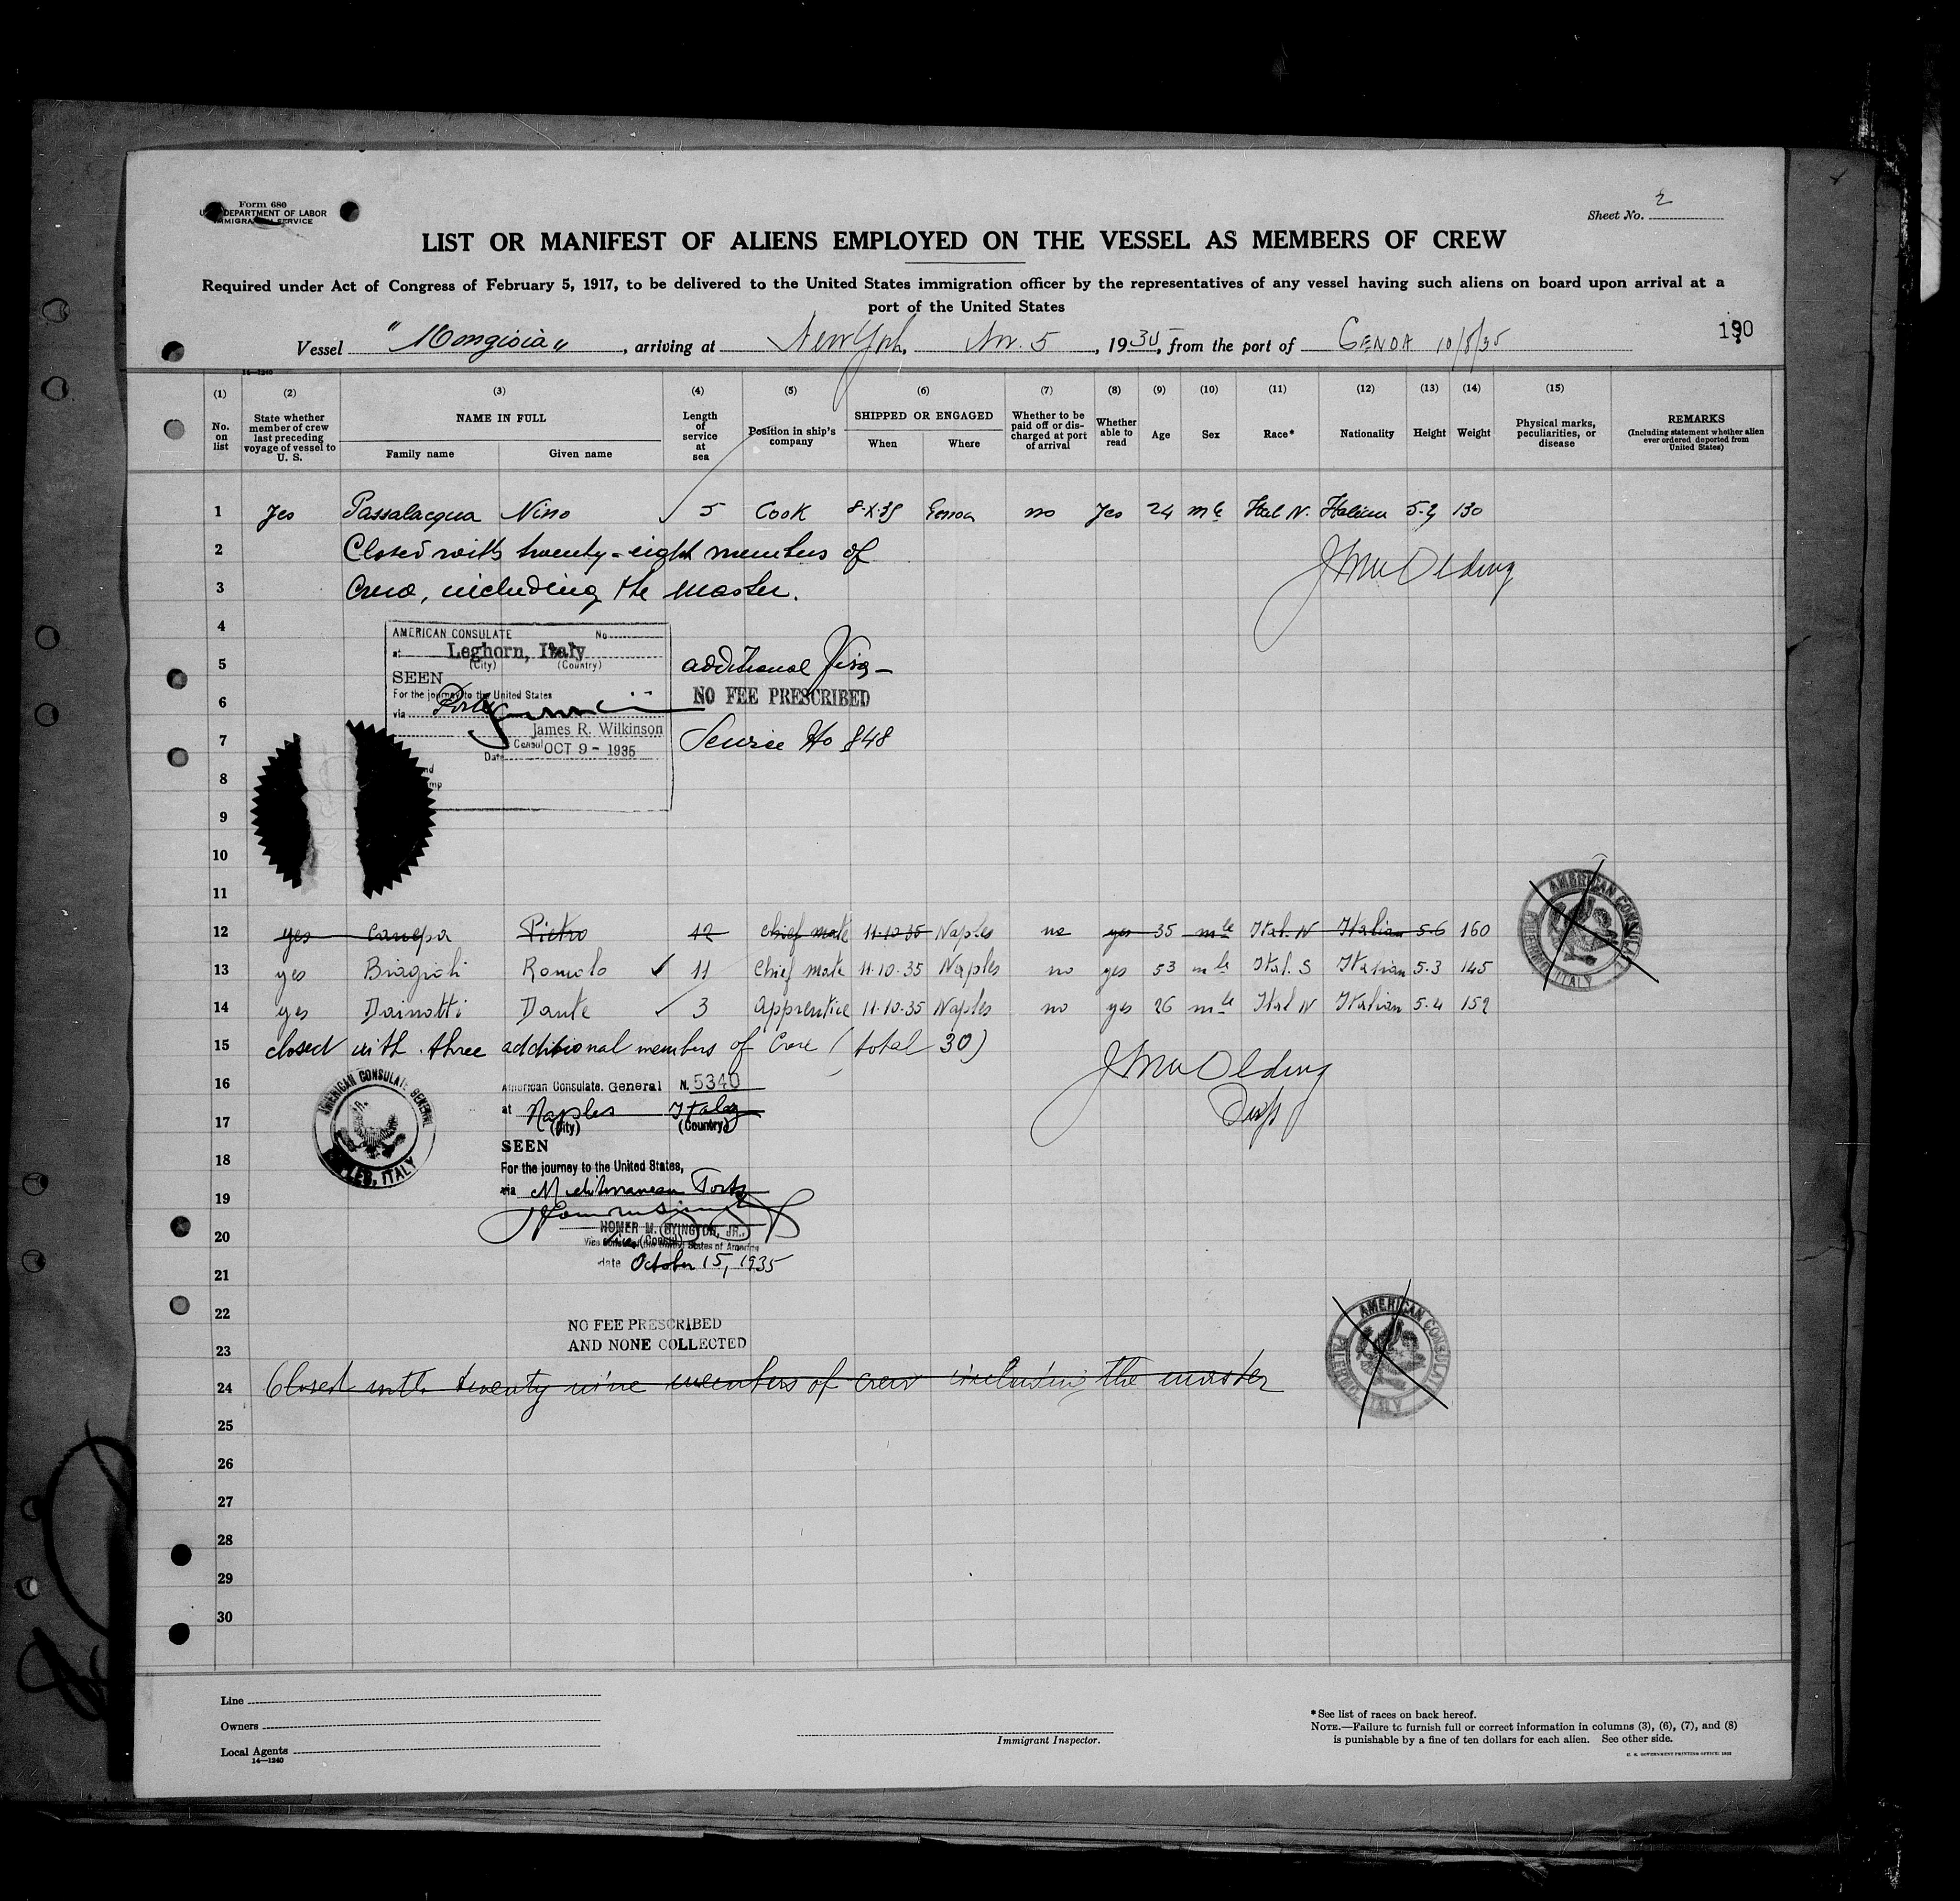 Form 680
U. S. DEPARTMENT OF LABOR
IMMIGRATION SERVICE
Sheet No. 2
LIST OR MANIFEST OF ALIENS EMPLOYED ON THE VESSEL AS MEMBERS OF CREW
Required under Act of Congress of February 5, 1917, to be delivered to the United States immigration officer by the representatives of any vessel having such aliens on board upon arrival at a
port of the United States
190
Vessel "Mongioia", arriving at New York, Nov. 5, 1935, from the port of GENOA 10/8/35
14—1240
(1) (2) (3) (4) (5) (6) (7) (8) (9) (10) (11) (12) (13) (14) (15)
No. on list
State whether member of crew last preceding voyage of vessel to U. S.
NAME IN FULL
Family name
Given name
Length of service at sea
Position in ship's company
SHIPPED OR ENGAGED
When
Where
Whether to be paid off or discharged at port of arrival
Whether able to read
Age
Sex
Race*
Nationality
Height
Weight
Physical marks, peculiarities, or disease
REMARKS
(Including statement whether alien ever ordered deported from United States)
1 Yes Passalacqua Nino ✓ 5 Cook 8-X-35 Genoa no Yes 24 mle Ital N. Italian 130
2 Closed with twenty-eight members of
3 Crew, including the master.
4
AMERICAN CONSULATE No
at Leghorn, Italy
(City) (Country)
5
additional Visa -
SEEN
For the journey to the United States
6
NO FEE PRESCRIBED
via Ports
James R. Wilkinson
7
Service No 848
Consul
Date OCT 9 - 1935
8
9
10
11
AMERICAN CONSULATE
PALERMO, ITALY
12 yes Canepa Pietro 12 chief mate 11-10-35 Naples no yes 35 mle Ital. N Italian 5-6 160
13 yes Biagioli Romolo ✓ 11 Chief mate 11-10-35 Naples no yes 53 mle Ital. S Italian 5.3 145
14 yes Dainotti Dante ✓ 3 apprentice 11-10-35 Naples no yes 26 mle Ital N Italian 5.4 152
15 closed with three additional members of Crew (total 30)
16
AMERICAN CONSULATE GENERAL
NAPLES, ITALY
American Consulate. General N. 5340
at Naples Italy
17
(City) (Country)
SEEN
18
For the journey to the United States,
via Mediterranean Ports
19
HOMER M. BYINGTON, JR.,
20
Vice Consul of the United States of America
(Consul)
date October 15, 1935
21
22
NO FEE PRESCRIBED
AND NONE COLLECTED
23
AMERICAN CONSULATE
PALERMO, ITALY
24 Closed with twenty nine members of crew including the master
25
26
27
28
29
30
Line
Owners
Local Agents
14—1240
Immigrant Inspector.
*See list of races on back hereof.
NOTE.—Failure to furnish full or correct information in columns (3), (6), (7), and (8)
is punishable by a fine of ten dollars for each alien. See other side.
U. S. GOVERNMENT PRINTING OFFICE: